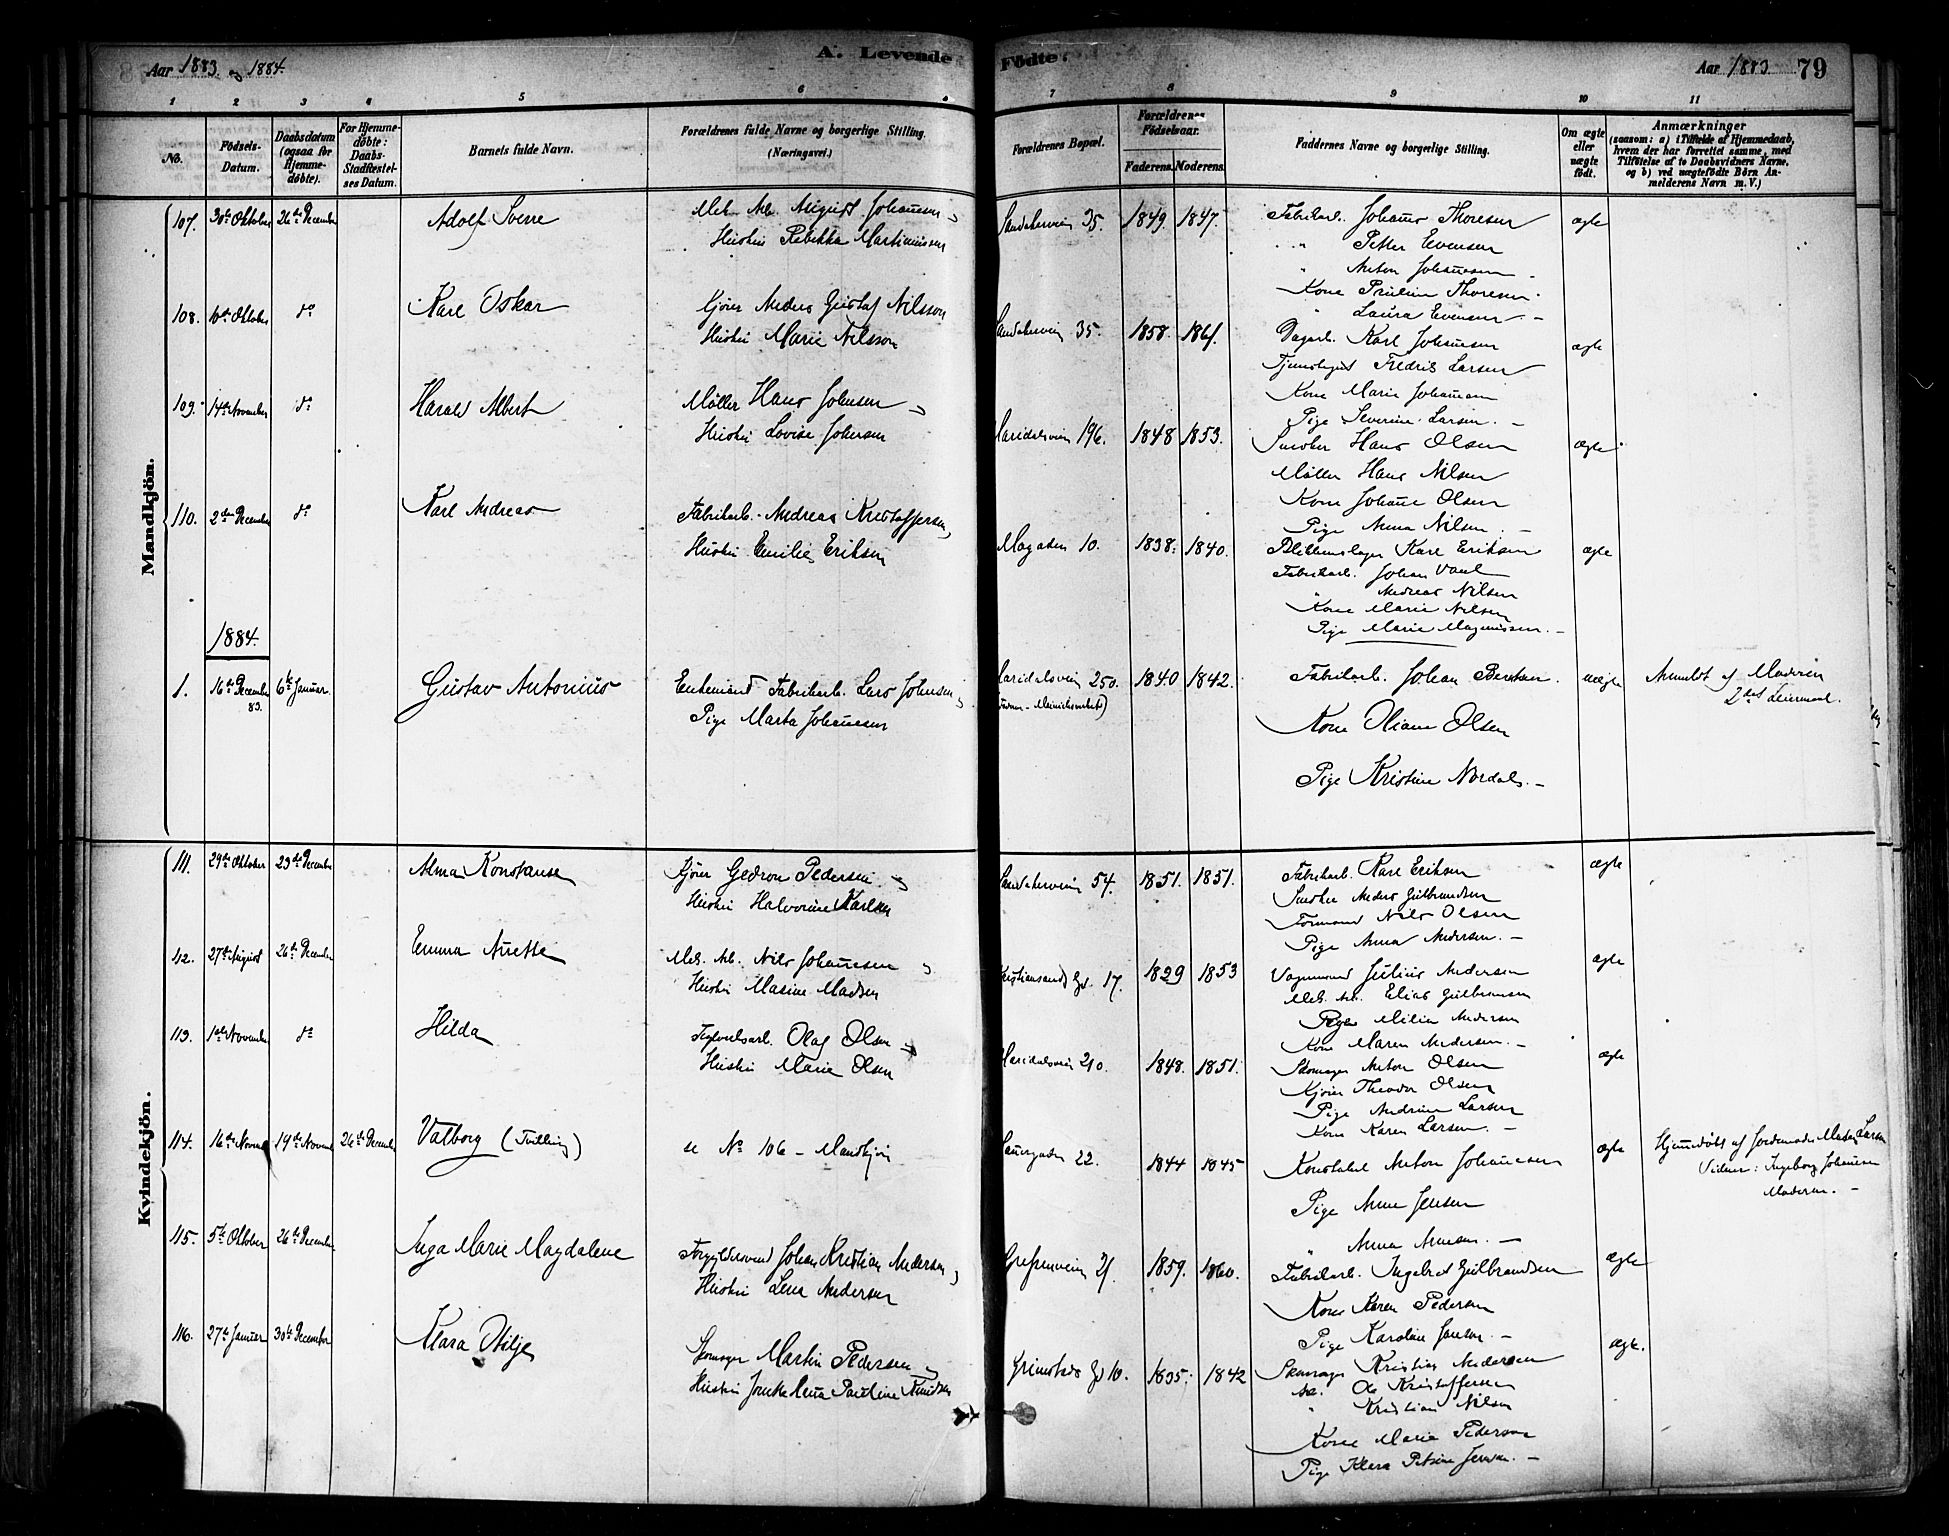 Aar 1883 og 1884.
A. Levende
Fødte.
Aar 1883. 79
1 2 3 4 5 6 6 7 8 9 10 11
No.
Fødsels-Datum.
Daabsdatum (ogsaa for Hjemme-døbte).
For Hjemme-døbte: Daabs-Stadfæstel-ses Datum.
Barnets fulde Navn.
Forældrenes fulde Navne og borgerlige Stilling. (Næringsvei.)
Forældrenes Bopæl.
Forældrenes Fødselsaar.
Faderens. Moderens.
Faddernes Navne og borgerlige Stilling.
Om ægte eller uægte født.
Anmærkninger
(saasom: a) i Tilfælde af Hjemmedaab, hvem der har forrettet samme, med Tilføielse af to Daabsvidners Navne, og b) ved uægtefødte Børn An-melderens Navn m. V.)
Mandkjön.
107. 30te Oktober 26de December Adolf Sverre Mek. Arb. August Johansen Sandakerveien 35. 1849. 1847. Fabrikarb. Johans Thoresen ægte
Hustru Rebekka Martinussen " Petter Evensen
" Anton Johansen
Kone Pauline Thoresen
" Laura Evensen
108. 10de Oktober do Karl Oskar Kjører Anders Gustaf Nilsson Sandakerveien 35. 1858. 1861. Dagarb. Karl Johansen ægte
Hustru Marie Nilsson Fredrik Larsen
Kone Marie Johansen
Pige Severine Larsen
109. 14de November do Harald Albert Møller Hans Johnsen Maridalsveien 196. 1848 1853. Snedker Hans Olsen ægte
Hustru Lovise Johnsen Møller Hans Nilsen
Kone Johanne Olsen
Pige Anna Nilsen
110. 2den December do Karl Andreas Fabrikarb. Andreas Kristoffersen Mogaden 10. 1838. 1840. Blikkenslager Karl Eriksen ægte
Hustru Emilie Eriksen Fabrikarb. Johan
" Andreas Nilsen
Kone Marie Nilsen
Pige Marie Magnussen
1884.
1. 16de December 83. 6te Januar Gustav Antonius Enkemand Fabrikarb. Lars Johnsen Maridalsveien 250. 1840 1842. Fabrikarb. Johan Berntsen uægte Anmeldt af Moderen
Pige Marta Johansen 2det Leiermaal.
Kone Oliane Olsen
Pige Kristine Nordal
Kvindekjön.
111. 29de Oktober 23de December Alma Konstanse Kjører Gedeon Pedersen Sandakerveien 54. 1851. 1851. Fabrikarb. Karl Eriksen ægte
Hustru Halvorine Karlsen Snedker Anders Gulbrandsen
Formand Nils Olsen
Pige Anna Andersen
112. 27de August 26de December Emma Anette Mek. Arb. Nils Johannesen Kristiansands Gd. 17. 1829 1853 Vognmand Julius Andersen ægte
Hustru Maxine Madsen Mek. Arb. Elias Gulbransen
Pige Milia Andersen
Kone Maren Andersen
113. 1ste November do Hilda Teglverksarb. Olaf Olsen Maridalsveien 210. 1848. 1851. Skomager Anton Olsen ægte
Hustru Marie Olsen Kjører Theodor Olsen
Pige Andrine Larsen
Kone Karen Larsen
114. 16de Novem 19de Novem 26de December Valborg (Tvilling) se No 106 – Mandkjøn 22. 1844 1845 Konstabel Anton Johannesen ægte Hjemdøbt af Jordemoder Larsen
Pige Anne Jensen Vidner: Ingeborg Johansen
" Anna Moderen.
115. 5te Oktober 26de December Inga Marie Magdalene Forgyldersvend Johan Kristian Andersen Grefsenveien 21. 1859. 1860. Fabrikarb. Ingebret Gulbrandsen ægte
Hustru Lena Andersen Kone Karen Pedersen
Pige Karoline Jensen
116. 27de Januar 30te December Klara Otilje Skomager Martin Pedersen Grimstads Gd 10. 1835. 1842 Skomager Kristian Andersen ægte.
Hustru Pauline Knudsen do. Ole Kristoffersen
" Kristian Nilsen
Kone Marie Pedersen
Pige Klara Petrine Jensen